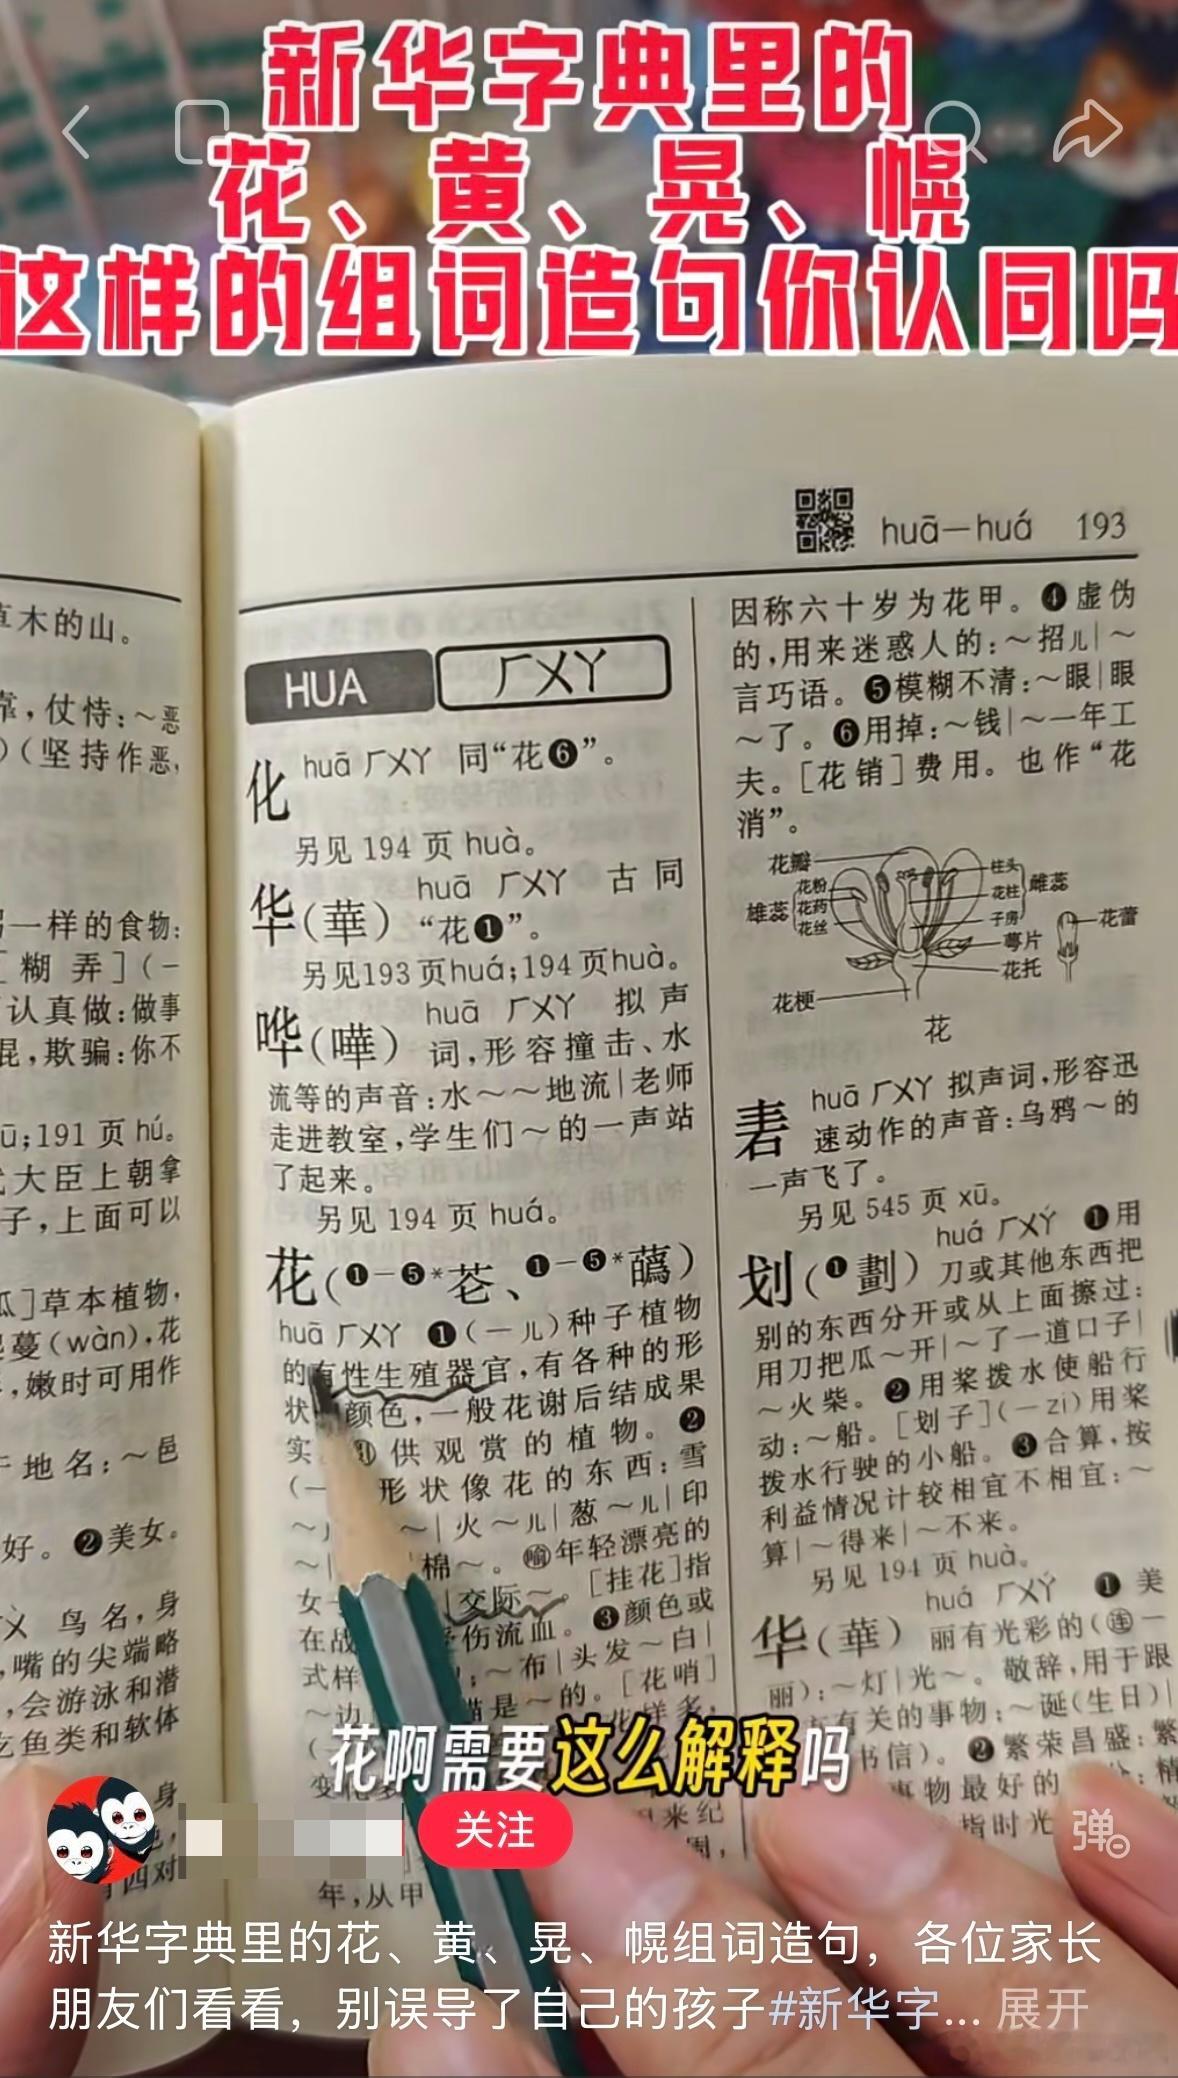 新华字典里的
花、黄、晃、幌
这样的组词造句你认同吗
huā—huá 193
草木的山。
靠,仗恃:～恶
)(坚持作恶,
另一样的食物:
[糊弄](一
认真做:做事
混,欺骗:你不
ū;191页hú。
代大臣上朝拿
子,上面可以
瓜]草本植物,
蔓(wàn),花
,嫩时可用作
地名:～邑
好。❷美女。
ㄨ 鸟名,身
,嘴的尖端略
,会游泳和潜
吃鱼类和软体
身
四对
HUA ㄏㄨㄚ
化 huā ㄏㄨㄚ 同“花❻”。
另见194页huà。
华(華) huā ㄏㄨㄚ 古同
“花❶”。
另见193页huá;194页huà。
哗(嘩) huā ㄏㄨㄚ 拟声
词,形容撞击、水
流等的声音:水～～地流|老师
走进教室,学生们～的一声站
了起来。
另见194页huá。
花(❶-❺*苍、❶-❺*蘤)
huā ㄏㄨㄚ ❶(一儿)种子植物
的有性生殖器官,有各种的形
状 颜色,一般花谢后结成果
实 供观赏的植物。❷
(一 形状像花的东西:雪
～ ～|火～儿|葱～儿|印
～| 棉～。㊉年轻漂亮的
女 |交际～。[挂花]指
在战 受伤流血。❸颜色或
式样 :～布|头发～白|
～边 猫是～的。[花哨]
花样多,
变化多
来纪
周,
年,从甲
因称六十岁为花甲。❹虚伪
的,用来迷惑人的:～招儿|～
言巧语。❺模糊不清:～眼|眼
～了。❻用掉:～钱|～一年工
夫。[花销]费用。也作“花
消”。
花瓣
花粉
雄蕊 花药
花丝
柱头
花柱 雌蕊
子房
萼片
花托
花蕾
花梗
花
砉 huā ㄏㄨㄚ 拟声词,形容迅
速动作的声音:乌鸦～的
一声飞了。
另见545页xū。
划(❶劃) huá ㄏㄨㄚˊ ❶用
刀或其他东西把
别的东西分开或从上面擦过:
用刀把瓜～开|～了一道口子|
～火柴。❷用桨拨水使船行
动:～船。[划子](一zi)用桨
拨水行驶的小船。❸合算,按
利益情况计较相宜不相宜:～
算|～得来|～不来。
另见194页huà。
华(華) huá ㄏㄨㄚˊ ❶美
丽有光彩的(㊣一
丽):～灯|光～。敬辞,用于跟
有关的事物:～诞(生日)|
书信)。❷繁荣昌盛:繁
事物最好的 :精
指时光
花啊需要这么解释吗
关注
弹
新华字典里的花、黄、晃、幌组词造句，各位家长
朋友们看看，别误导了自己的孩子#新华字... 展开